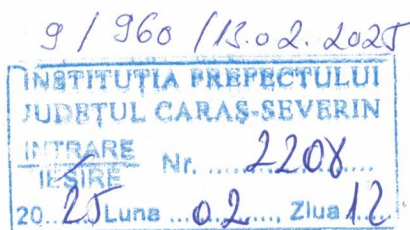 9 / 960 / 13.02.2025
INSTITUȚIA PREFECTULUI
JUDEȚUL CARAȘ-SEVERIN
INTRARE
IEȘIRE
Nr. ....2208....
20..25 Luna ...02...., Ziua 12